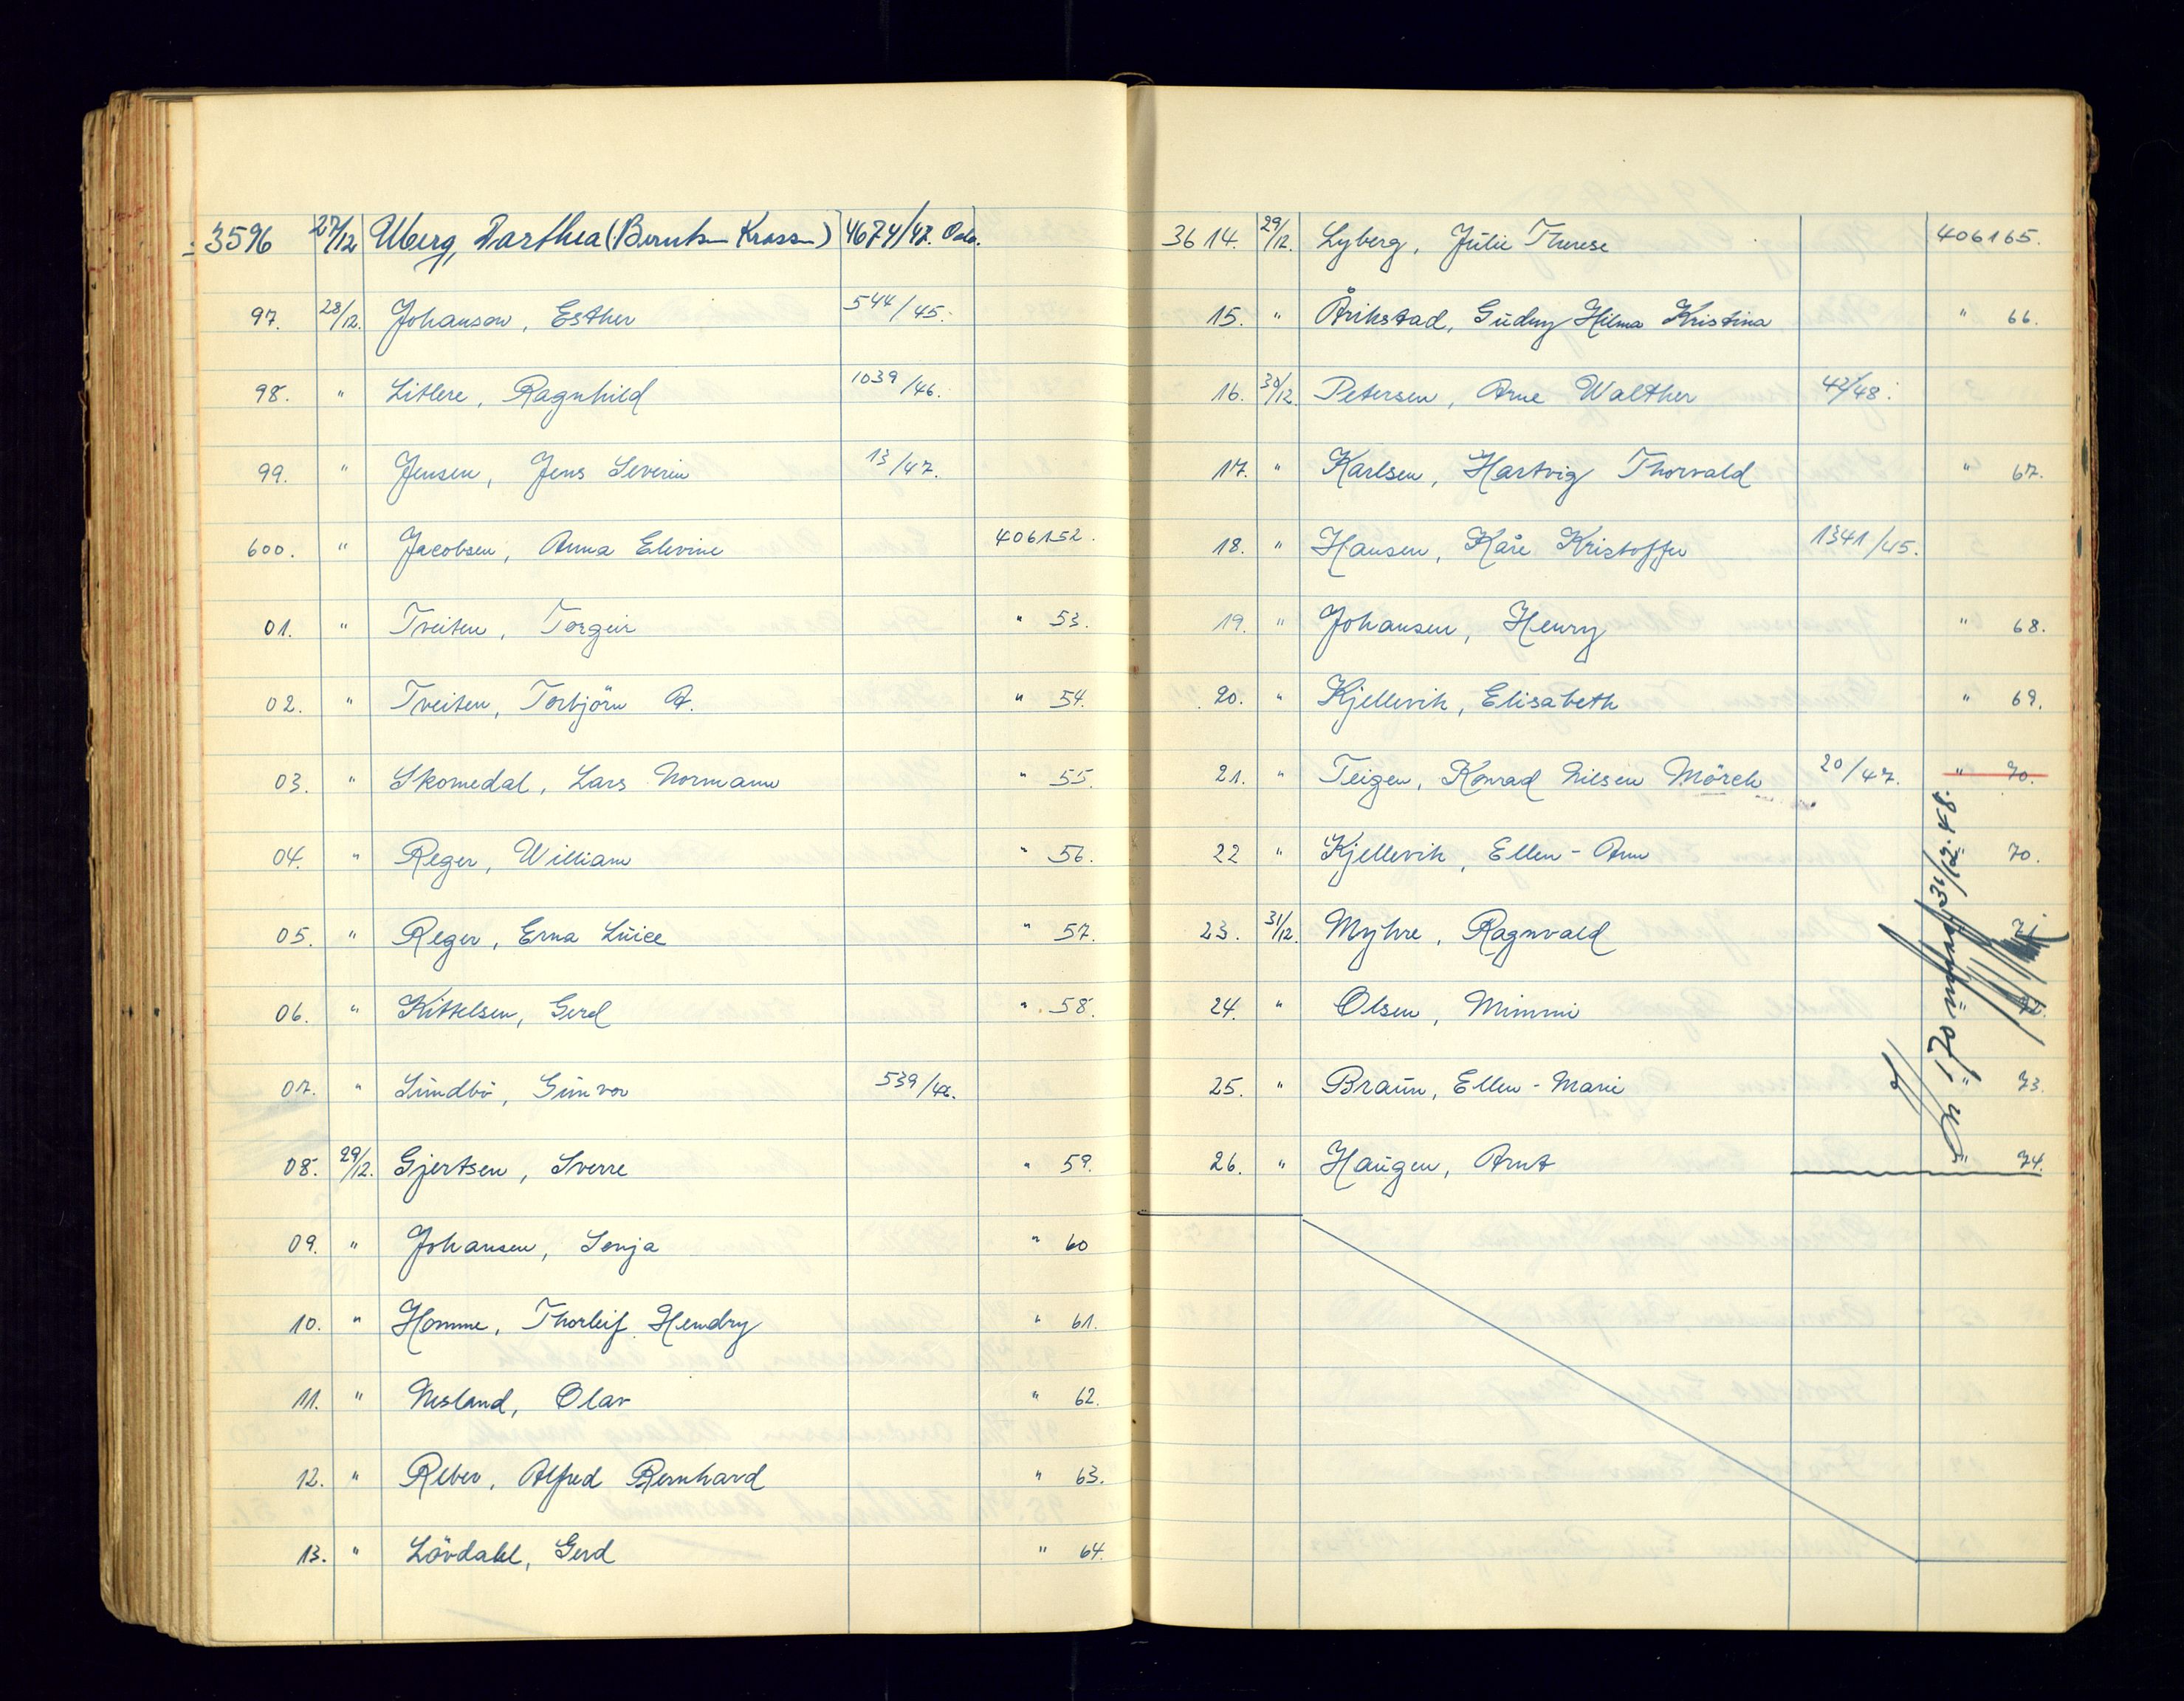 3596 27/12 Uberg, Darthea (Berntsen Krossen) 4674/47. Oslo.
97. 28/12. Johanson, Esther 544/45.
98. " Litlere, Ragnhild 1039/46.
99. " Jensen, Jens Severin 13/47.
600. " Jacobsen, Anna Elevine 406152.
01. " Tveiten, Torgeir " 53.
02. " Tveiten, Torbjörn A. " 54.
03. " Skomedal, Lars Normann " 55.
04. " Reger, William " 56.
05. " Reger, Erna Luice " 57.
06. " Kittelsen, Gerd " 58.
07. " Sundbö, Gunvor 539/46.
08. 29/12. Gjertsen, Sverre " 59.
09. " Johansen, Sonja " 60
10. " Homme, Thorleif Hendry " 61.
11. " Nesland, Olav " 62.
12. " Reber, Alfred Bernhard " 63.
13. " Lövdahl, Gerd " 64.
3614. 29/12. Lyberg, Julie Therese 406165.
15. " Årikstad, Gudny Hilma Kristina " 66.
16. 30/12. Petersen, Arne Walther 42/48.
17. " Karlsen, Hartvig Thorvald " 67.
18. " Hansen, Kåre Kristoffer 1341/45.
19. " Johansen, Henry " 68.
20. " Kjellevik, Elisabeth " 69.
21. " Teigen, Konrad Nilsen Mörch 20/47. " 70.
22 " Kjellevik, Ellen-Ann " 70.
23. 31/12. Myhre, Ragnvald 71
24. " Olsen, Mimmi 72.
25. " Braun, Ellen-Marie " 73.
26. " Haugen, Arnt " 74.
31/12.48.